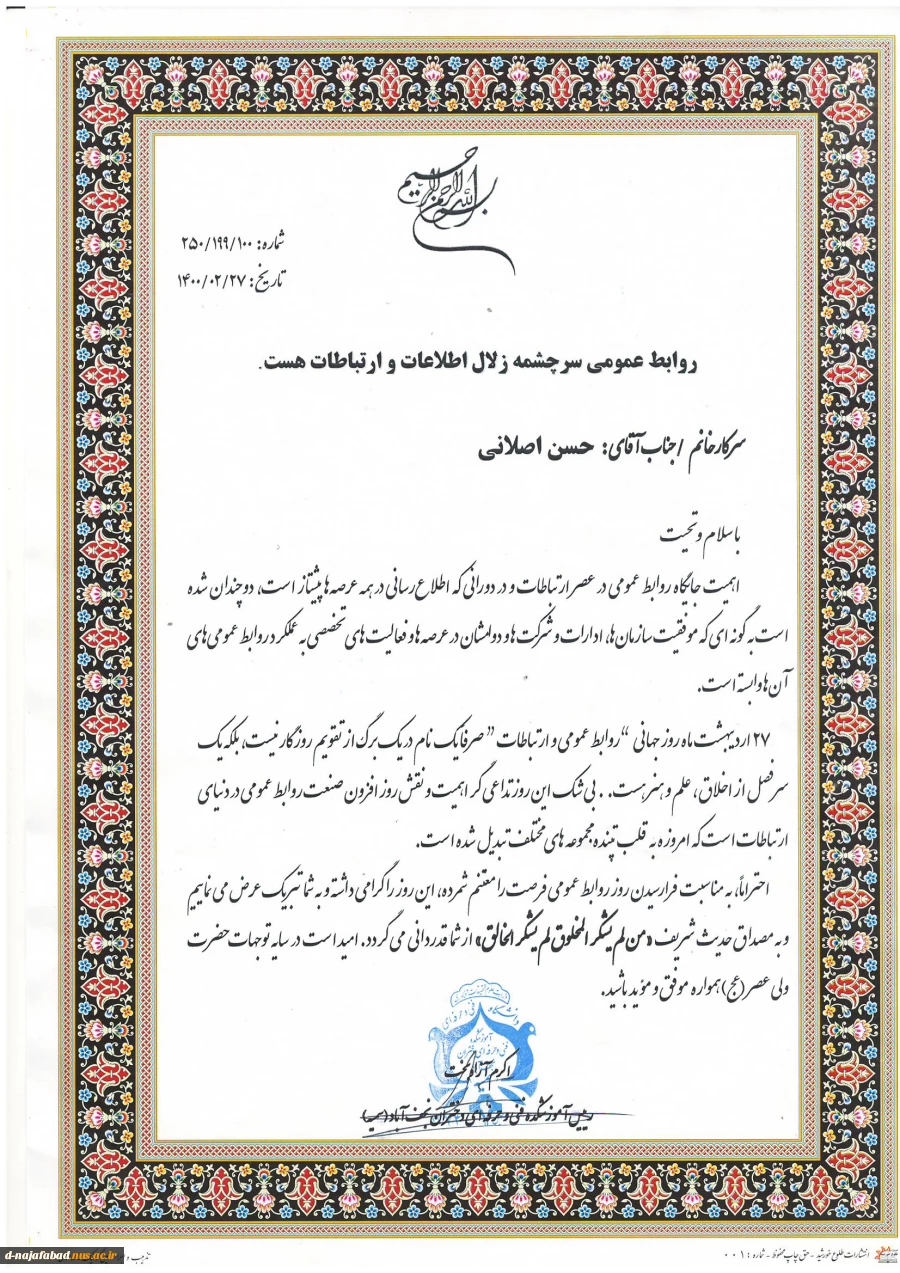 بسم الله الرحمن الرحیم
شماره: ۲۵۰/۱۹۹/۱۰۰
تاریخ: ۱۴۰۰/۰۲/۲۷
روابط عمومی سرچشمه زلال اطلاعات و ارتباطات هست.
سرکار خانم / جناب آقای: حسن اصلانی
با سلام و تحیت
اهمیت جایگاه روابط عمومی در عصر ارتباطات و در دورانی که اطلاع رسانی در همه عرصه ها پیشتاز است، دو چندان شده
است به گونه ای که موفقیت سازمان ها، ادارات و شرکت ها و دوامشان در عرصه ها و فعالیت های تخصصی به عملکرد روابط عمومی های
آن ها وابسته است.
۲۷ اردیبهشت ماه روز جهانی “روابط عمومی و ارتباطات” صرفا یک نام در یک برگ از تقویم روزگار نیست، بلکه یک
سر فصل از اخلاق، علم و هنر هست. . بی شک این روز تداعی گر اهمیت و نقش روز افزون صنعت روابط عمومی در دنیای
ارتباطات است که امروزه به قلب تپنده مجموعه های مختلف تبدیل شده است.
احتراماً، به مناسبت فرا رسیدن روز روابط عمومی فرصت را مغتنم شمرده، این روز را گرامی داشته و به شما تبریک عرض می نماییم
و به مصداق حدیث شریف «من لم یشکر المخلوق لم یشکر الخالق» از شما قدردانی می گردد. امید است در سایه توجهات حضرت
ولی عصر (عج) همواره موفق و مؤید باشید.
اکرم آزاد بخت
رئیس آموزشکده فنی و حرفه ای دختران نجف آباد (سمیه)
انتشارات طلوع خورشید - حق چاپ محفوظ - شماره: ۰۰۱
تذهیب و
d-najafabad.nus.ac.ir